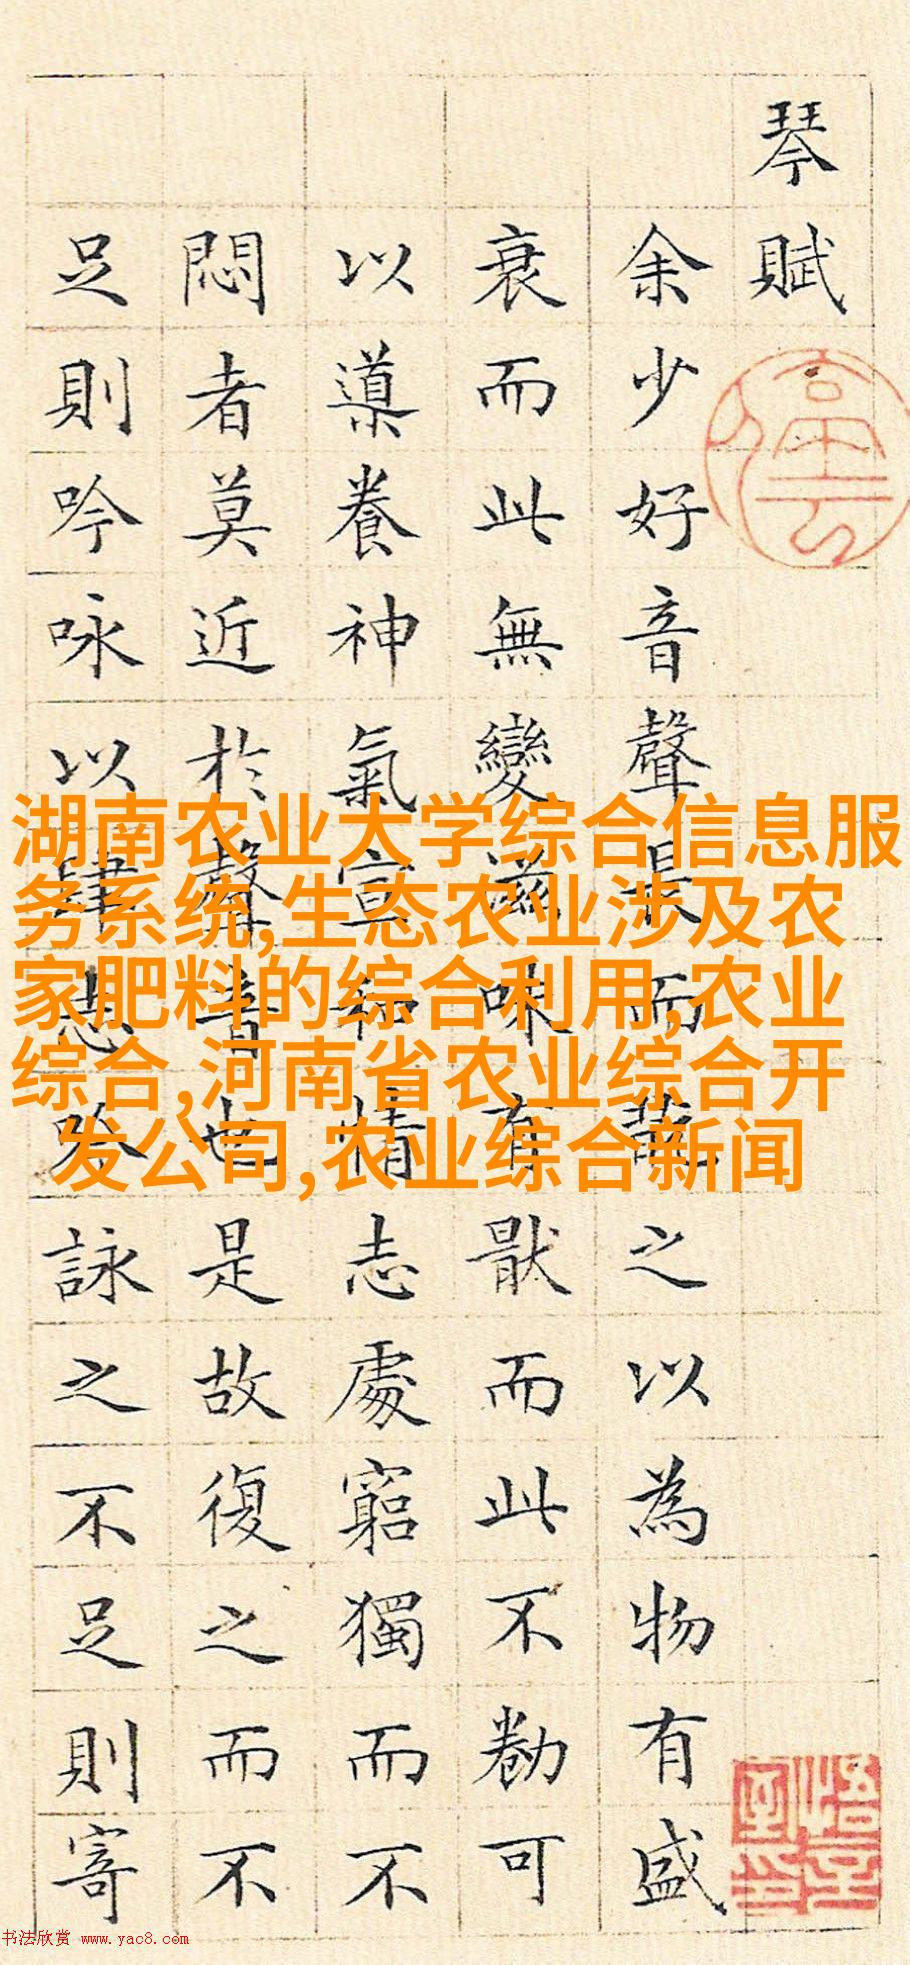 琴賦
余少好音聲長而翫之以為物有盛
衰而此無變滋味有猒而此不勌可
以導養神氣宣和情志處窮獨而不
悶者莫近於聲音也是故復之而不
足則吟咏以肆志吟詠之不足則寄
停雲
悟言室印
湖南农业大学综合信息服
务系统,生态农业涉及农
家肥料的综合利用,农业
综合,河南省农业综合开
发公司,农业综合新闻
书法欣赏 www.yac8.com